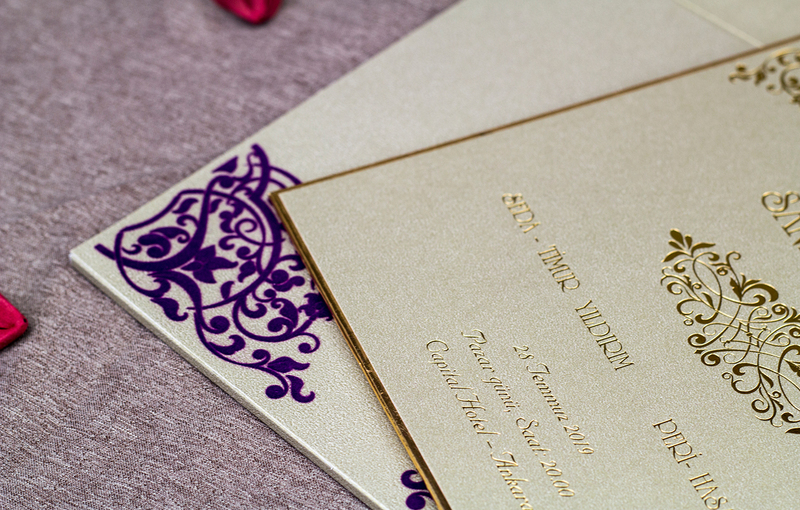 SEDA - TİMUR YILDIRIM
28 Temmuz 2019
Pazar günü, Saat: 20.00
Capital Hotel - Ankara
PERİ-